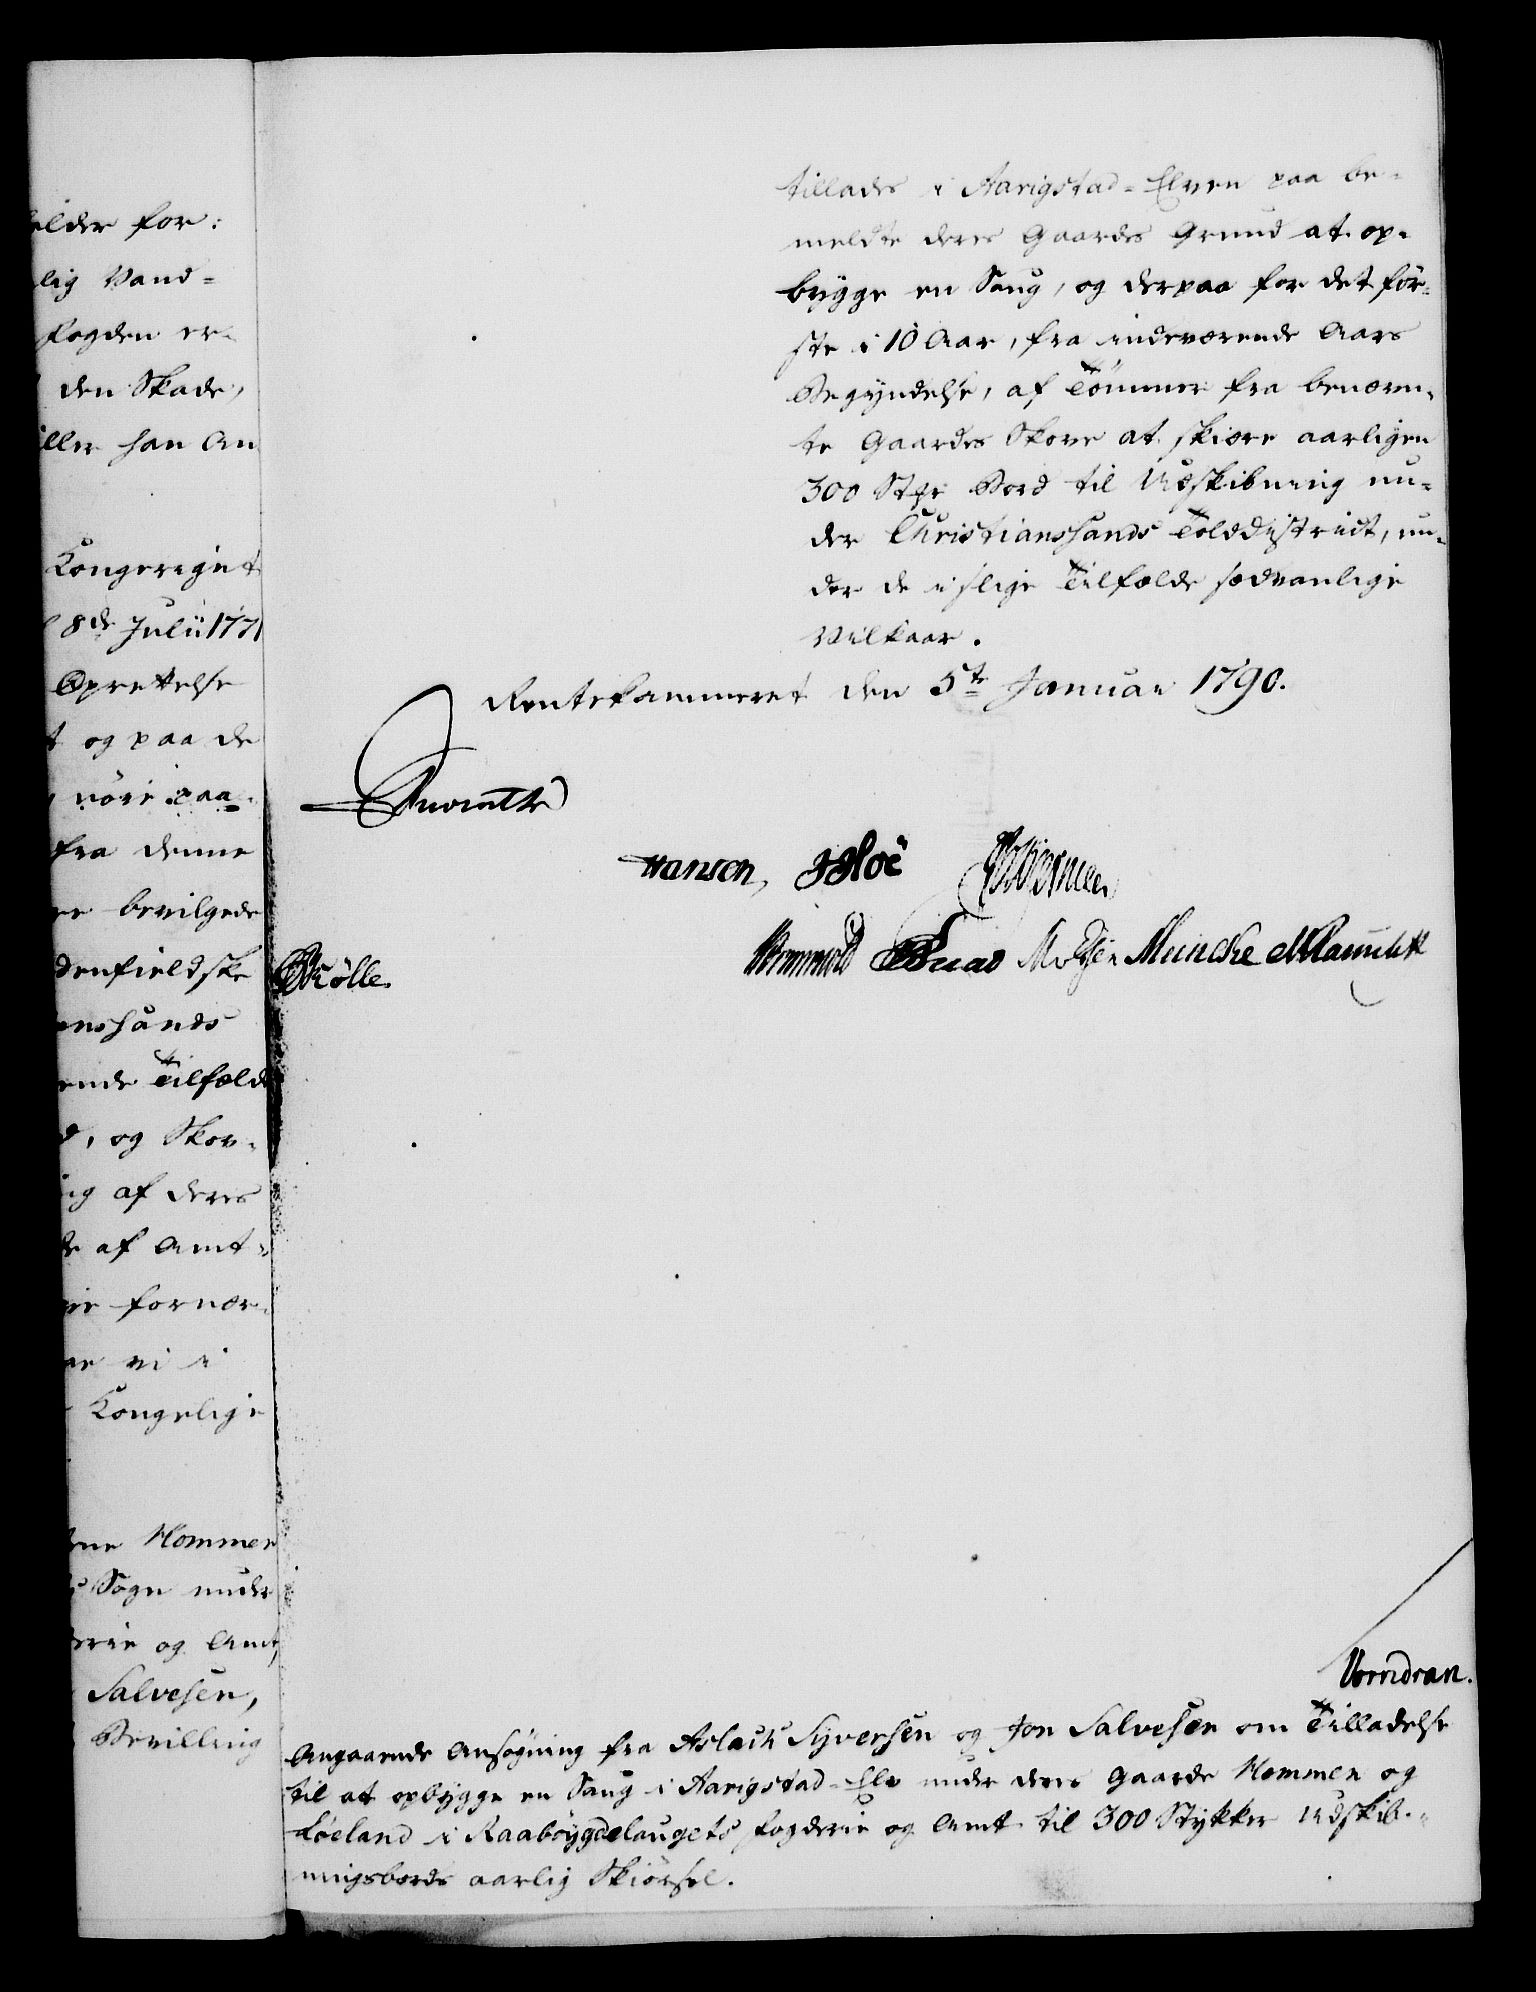 ilder for:
lig Vand-
fogden er-
den Skade,
iller han an
Kongeriget
8de Julii 1771
Oprettelse
t og paa de
nöie paa-
fra denne
bevilgede
denfieldske
anshands
ende Tilfælde
d, og Skov-
ig af deres
de af Amt-
fornær-
ar vi i
Kongelige
ene Hommen
Sogn under
derie og Amt,
Salvesen,
Bevilling
tillades i Aarigstad-Elven paa be-
meldte deres Gaardes Grund at op-
bygge en Saug, og derpaa for det før-
ste i 10 Aar, fra indeværende Aars
Begyndelse, af Tömmer fra benævn-
te Gaardes Skove at skiære aarligen
300 Stkr Bord til Udskibning un-
der Christianshands Tolddistrict, un-
der de i slige Tilfælde sædvanlige
Vilkaar.
Rentekammeret den 5te Januar 1790.
Hansen, Hoë
Meinche
Skölle.
Vorndran.
Angaaende Ansøgning fra Aslach Syversen og Jon Salvesen om Tilladelse
til at opbygge en Saug i Aarigstad-Elv under deres Gaarde Hommen og
Löeland i Raabøygdelaugets fogderie og Amt til 300 Stykker Udskib-
ningsbords aarlig Skiørsel.